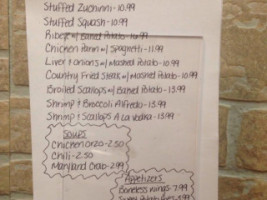 Stuffed Zuchinni - 10.99
Stuffed Squash - 10.99
Ribeye w/ Baked Potato - 10.99
Chicken Parm w/ Spaghetti - 11.99
Liver & Onions w/ Mashed Potato - 10.99
Country Fried Steak w/ Mashed Potato - 10.99
Broiled Scallops w/ Baked Potato - 13.99
Shrimp & Broccoli Alfredo - 13.99
Shrimp & Scallops A La Vodka - 13.99
Soups
Chicken Orzo - 2.50
Chili - 2.50
Maryland Crab - 2.99
Appetizers
Boneless Wings - 7.99